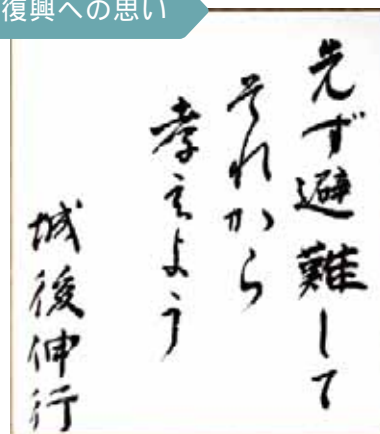 復興への思い
先ず避難して
それから
考えよう
城後伸行